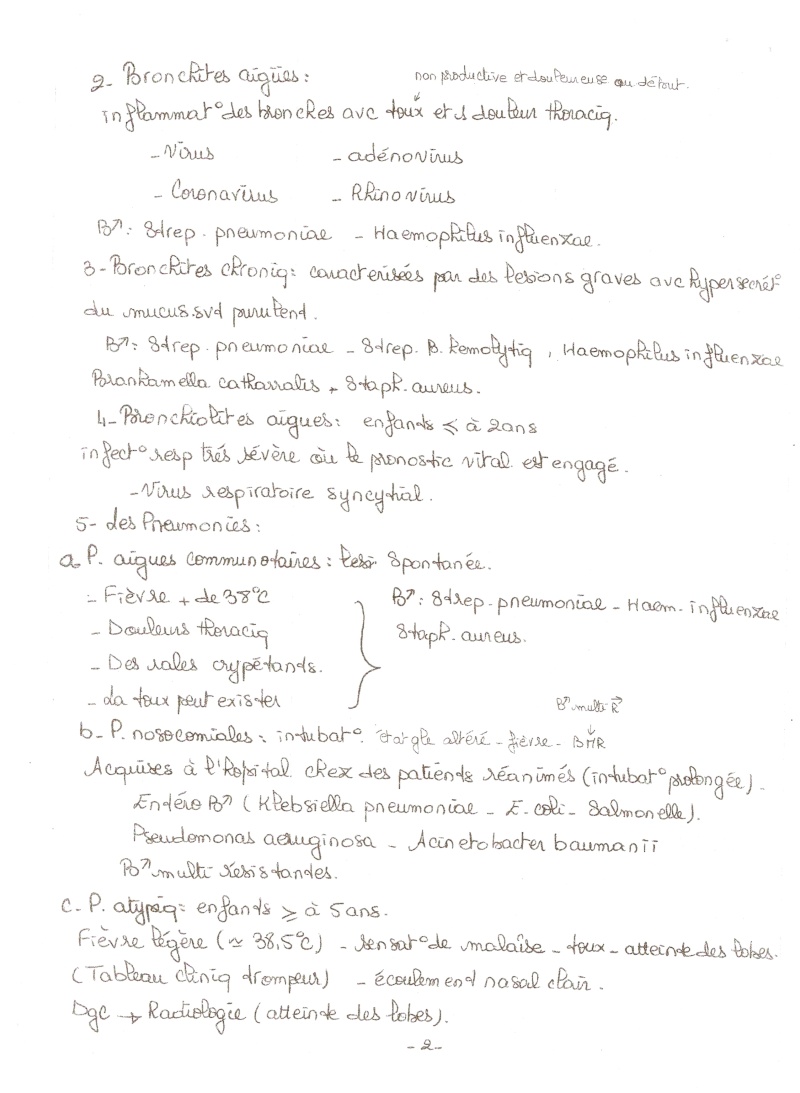 2- Bronchites aigües :
non productive et douleureuse au début.
inflammat° des bronches avc toux et s douleur thoraciq.
- Virus - adénovirus
- Coronavirus - Rhinovirus
B↗: Strep. pneumoniae - Haemophilus influenzae.
3- Bronchites chroniq: caractérisées par des lésions graves avc hypersecrét°
du mucus svt purulent.
B↗: Strep. pneumoniae - Strep. B. hemolytiq, Haemophilus influenzae
Branhamella catharralis + Staph. aureus.
4- Bronchiolites aigues : enfants ⩽ à 2ans
infect° resp trés sévère où le pronostic vital est engagé.
- Virus respiratoire syncytial.
5- des Pneumonies :
a. P. aigues communotaires : Spontanée.
- Fièvre + de 38°C
B↗: Strep. pneumoniae - Haem. influenzae
- Douleurs thoraciq
Staph. aureus.
- Des rales crypétants.
- La toux peut exister
B↗ multi R
b- P. nosocomiales : intubat° état gle altéré - fièvre - BMR
Acquises à l'hopital chez des patients réanimés (intubat° prolongée).
Entéro B↗ (Klebsiella pneumoniae - E. coli - Salmonelle).
Pseudomonas aeruginosa - Acinetobacter baumanii
B↗ multi résistantes.
c- P. atypiq: enfants ⩾ à 5ans.
Fièvre légère (≃ 38,5°C) - sensat° de malaîse - toux - atteinte des lobes.
(Tableau cliniq trompeur) - écoulement nasal clair.
Dgc → Radiologie (atteinte des lobes).
- 2 -